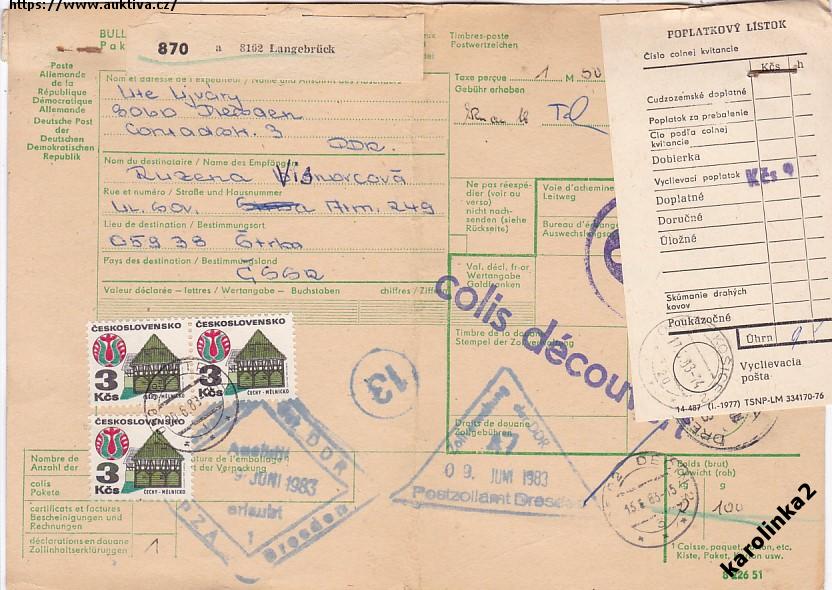 https://www.auktiva.cz/
BULL
Pak
870 a 8102 Langebrück
Timbres-poste
Postwertzeichen
Poste
Allemande
de la
République
Démocratique
Allemande
Deutsche Post
der
Deutschen
Demokratischen
Republik
Nom et adresse de l'expéditeur / Name und Anschrift des Absenders
Ute Ujváry
8060 Dresden
Conradstr. 3
DDR.
Taxe perçue 1 M 50
Gebühr erhoben
Nom du destinataire / Name des Empfängers
Ruzena Višnovcová
Rue et numéro / Straße und Hausnummer
ul. Sov. Arm. 249
Lieu de destination / Bestimmungsort
059 38 Štrba
Pays de destination / Bestimmungsland
ČSSR
Valeur déclarée - lettres / Wertangabe - Buchstaben chiffres / Ziffern
Ne pas réexpé-
dier (voir au
verso)
nicht nach-
senden (siehe
Rückseite)
Voie d'achemine
Leitweg
Bureau d'échang
Auswechslungs
Val. décl. fr-or
Wertangabe
Goldfranken
Timbre de la douane
Stempel der Zollverwaltung
Droits de douane
Zollgebühren
colis découvert
POPLATKOVÝ LÍSTOK
Číslo colnej kvitancie
Kčs h
Cudzozemské doplatné
Poplatok za prebalenie
Clo podľa colnej
kvitancie
Dobierka
Vyclievací poplatok Kčs 9
Doplatné
Doručné
Úložné
Skúmanie drahých
kovov
Poukázočné
Úhrn
Vyclievacia
pošta
14-487 (I.-1977) TSNP-LM 334170-76
ČESKOSLOVENSKO
3
Kčs
ČECHY-MĚLNICKO
ČESKOSLOVENSKO
3
Kčs
ČECHY-MĚLNICKO
ČESKOSLOVENSKO
3
Kčs
ČECHY-MĚLNICKO
13
der DDR
JUNI 1983
erlaubt
1
PZA
Dresden
der DDR
09. JUNI 1983
Postzollamt Dresden
Nombre de
Anzahl der
l'emballage
der Verpackung
colis
Pakete
certificats et factures
Bescheinigungen und
Rechnungen
déclarations en douane
Zollinhaltserklärungen
1
Poids (brut)
g
100
1 Caisse, paquet, carton, etc.
Kiste, Paket, Karton usw.
karolinka2